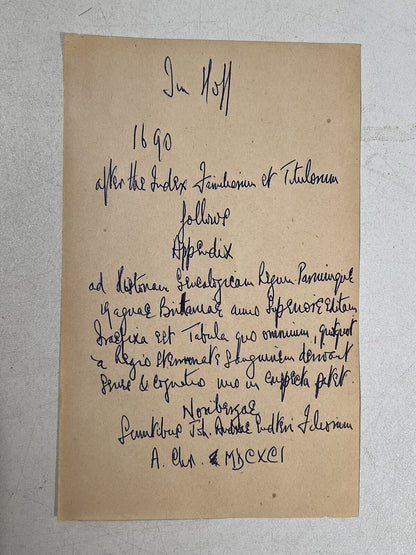 Im Hoff
1690
after the Index Familiarum et Titulorum
follows
Appendix
ad Historiam Genealogicam Regum Pariumque
Magnae Britanniae anno superiore editam
Praefixa est Tabula qua omnium, quotquot
a Regio Stemmate Sanguinem derivant
Series & cognatio uno in conspectu patet.
Noribergae
Sumtibus Joh. Andreae Endteri Filiorum
A. Chr. MDCXCI